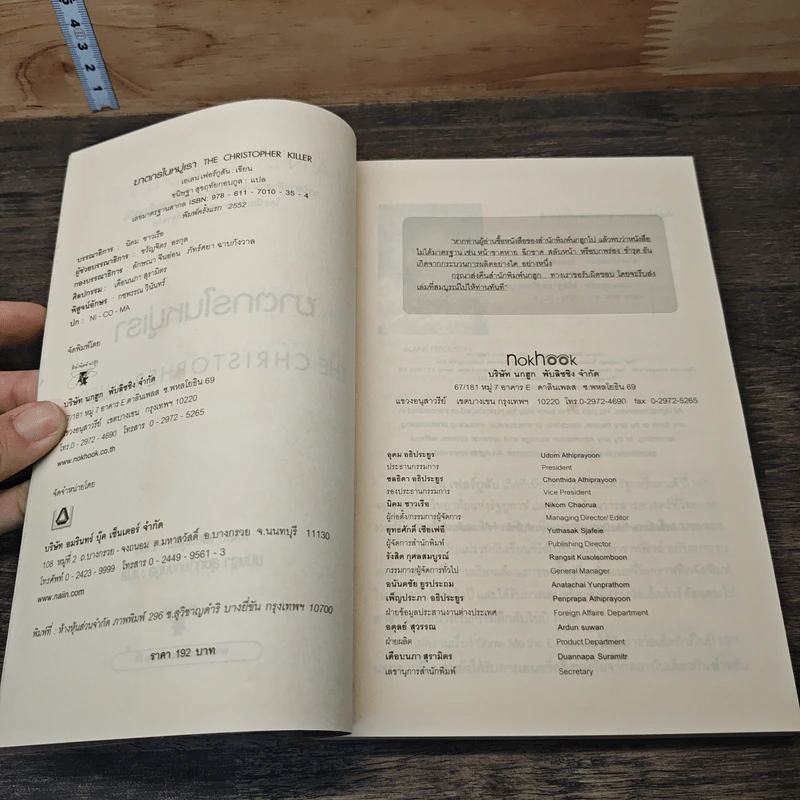 5 4 3 2 1
ฆาตกรในหมู่เรา THE CHRISTOPHER KILLER
เอเลน เฟอร์กูสัน : เขียน
ชนิษฐา สุขฤทัยกอบกูล : แปล
เลขมาตรฐานสากล ISBN: 978 - 611 - 7010 - 35 - 4
พิมพ์ครั้งแรก 2552
บรรณาธิการ : นิคม ชาวเรือ
ผู้ช่วยบรรณาธิการ : ขวัญจิตร อรกุล
กองบรรณาธิการ : ลักษณา จีนอ่อน ภัทร์ศยา ฉาบกังวาล
ศิลปกรรม : เดือนนภา สุรามิตร
พิสูจน์อักษร : กชพรรณ วินันทร์
ปก : NI - CO - MA
จัดพิมพ์โดย
บริษัท นกฮูก พับลิชชิ่ง จำกัด
67/181 หมู่ 7 อาคาร E ดาลินเพลส ซ.พหลโยธิน 69
แขวงอนุสาวรีย์ เขตบางเขน กรุงเทพฯ 10220
โทร.0 - 2972 - 4690 โทรสาร 0 - 2972 - 5265
www.nokhook.co.th
จัดจำหน่ายโดย
บริษัท อมรินทร์ บุ๊ค เซ็นเตอร์ จำกัด
108 หมู่ที่ 2 ถ.บางกรวย - จงถนอม ต.มหาสวัสดิ์ อ.บางกรวย จ.นนทบุรี 11130
โทรศัพท์ 0 - 2423 - 9999 โทรสาร 0 - 2449 - 9561 - 3
www.naiin.com
พิมพ์ที่ : ห้างหุ้นส่วนจำกัด ภาพพิมพ์ 296 ซ.สุวิชาญดำริ บางยี่ขัน กรุงเทพฯ 10700
ราคา 192 บาท
"หากท่านผู้อ่านซื้อหนังสือของสำนักพิมพ์นกฮูกไป แล้วพบว่าหนังสือ
ไม่ได้มาตรฐาน เช่น หน้าขาดหาย ฉีกขาด สลับหน้า หรือขอบกพร่อง ชำรุด อัน
เกิดจากกระบวนการผลิตอย่างใด อย่างหนึ่ง
กรุณาส่งคืนสำนักพิมพ์นกฮูก ทางเราขอรับผิดชอบ โดยจะรีบส่ง
เล่มที่สมบูรณ์ไปให้ท่านทันที"
nokhook
บริษัท นกฮูก พับลิชชิ่ง จำกัด
67/181 หมู่ 7 อาคาร E ดาลินเพลส ซ.พหลโยธิน 69
แขวงอนุสาวรีย์ เขตบางเขน กรุงเทพฯ 10220 โทร.0-2972-4690 fax 0-2972-5265
อุดม อธิประยูร Udom Athiprayoon
ประธานกรรมการ President
ชลธิดา อธิประยูร Chonthida Athiprayoon
รองประธานกรรมการ Vice President
นิคม ชาวเรือ Nikom Chaorua
ผู้ก่อตั้งกรรมการผู้จัดการ Managing Director/ Editor
ยุทธศักดิ์ เซียเฟอี Yuthasak Sjafeie
ผู้จัดการสำนักพิมพ์ Publishing Director
รังสิต กุศลสมบูรณ์ Rangsit Kusolsomboon
กรรมการผู้จัดการทั่วไป General Manager
อนันตชัย ยูรประถม Anatachai Yunprathom
เพ็ญประภา อธิประยูร Penprapa Athiprayoon
ฝ่ายข้อมูลประสานงานต่างประเทศ Foreign Affaire Department
อดุลย์ สุวรรณ Ardun suwan
ฝ่ายผลิต Product Department
เดือนนภา สุรามิตร Duannapa Suramitr
เลขานุการสำนักพิมพ์ Secretary